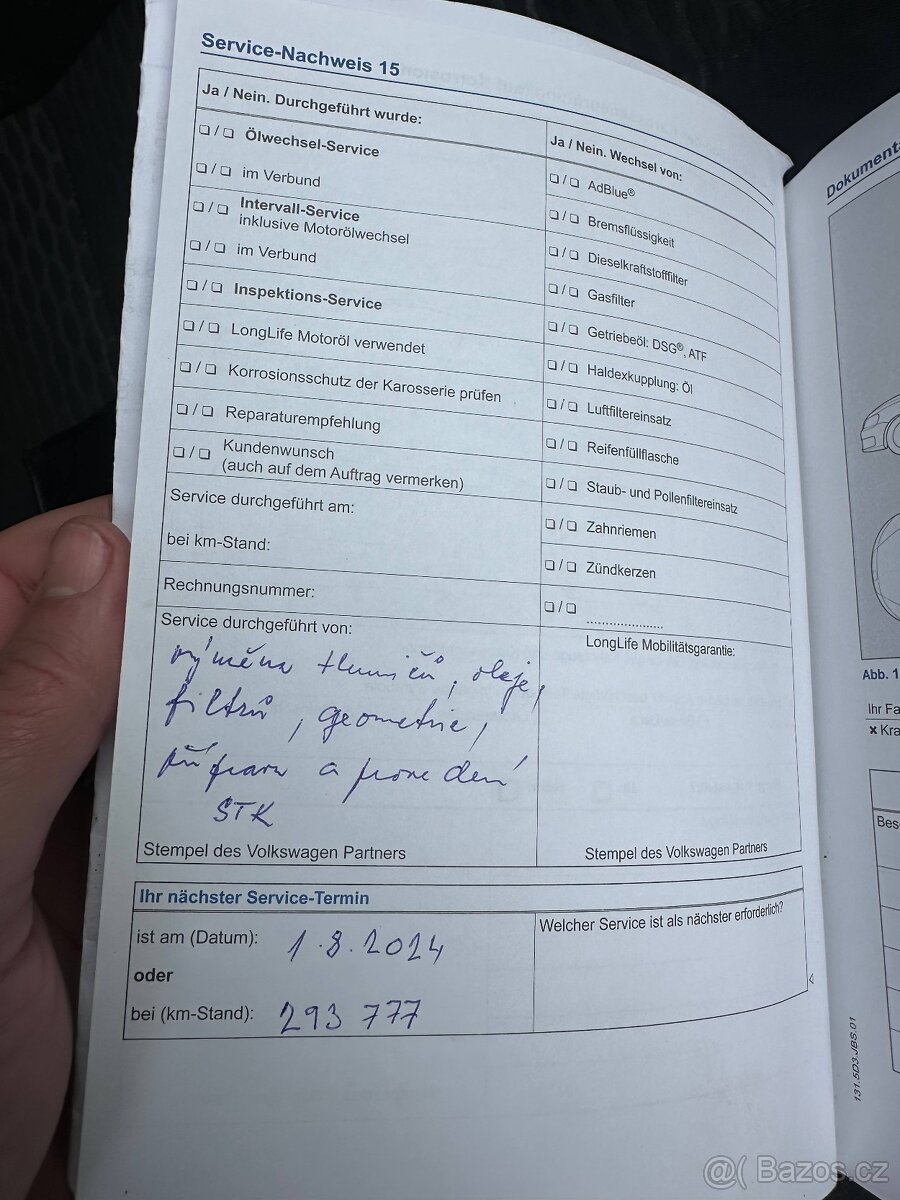 Service-Nachweis 15
Ja / Nein. Durchgeführt wurde:
❑ / ❑ Ölwechsel-Service
❑ / ❑ im Verbund
❑ / ❑ Intervall-Service
inklusive Motorölwechsel
❑ / ❑ im Verbund
❑ / ❑ Inspektions-Service
❑ / ❑ LongLife Motoröl verwendet
❑ / ❑ Korrosionsschutz der Karosserie prüfen
❑ / ❑ Reparaturempfehlung
❑ / ❑ Kundenwunsch
(auch auf dem Auftrag vermerken)
Service durchgeführt am:
bei km-Stand:
Rechnungsnummer:
Service durchgeführt von:
výměna tlumičů, oleje,
filtrů, geometrie,
příprava a provedení
STK
Stempel des Volkswagen Partners
Ja / Nein. Wechsel von:
❑ / ❑ AdBlue®
❑ / ❑ Bremsflüssigkeit
❑ / ❑ Dieselkraftstofffilter
❑ / ❑ Gasfilter
❑ / ❑ Getriebeöl: DSG®, ATF
❑ / ❑ Haldexkupplung: Öl
❑ / ❑ Luftfiltereinsatz
❑ / ❑ Reifenfüllflasche
❑ / ❑ Staub- und Pollenfiltereinsatz
❑ / ❑ Zahnriemen
❑ / ❑ Zündkerzen
❑ / ❑ ......................
LongLife Mobilitätsgarantie:
Stempel des Volkswagen Partners
Ihr nächster Service-Termin
ist am (Datum): 1.8.2024
oder
bei (km-Stand): 293 777
Welcher Service ist als nächster erforderlich?
131.5D3.JBS.01
Dokumenta
Abb. 1
Ihr Fa
× Kra
Bes
@( Bazos.cz